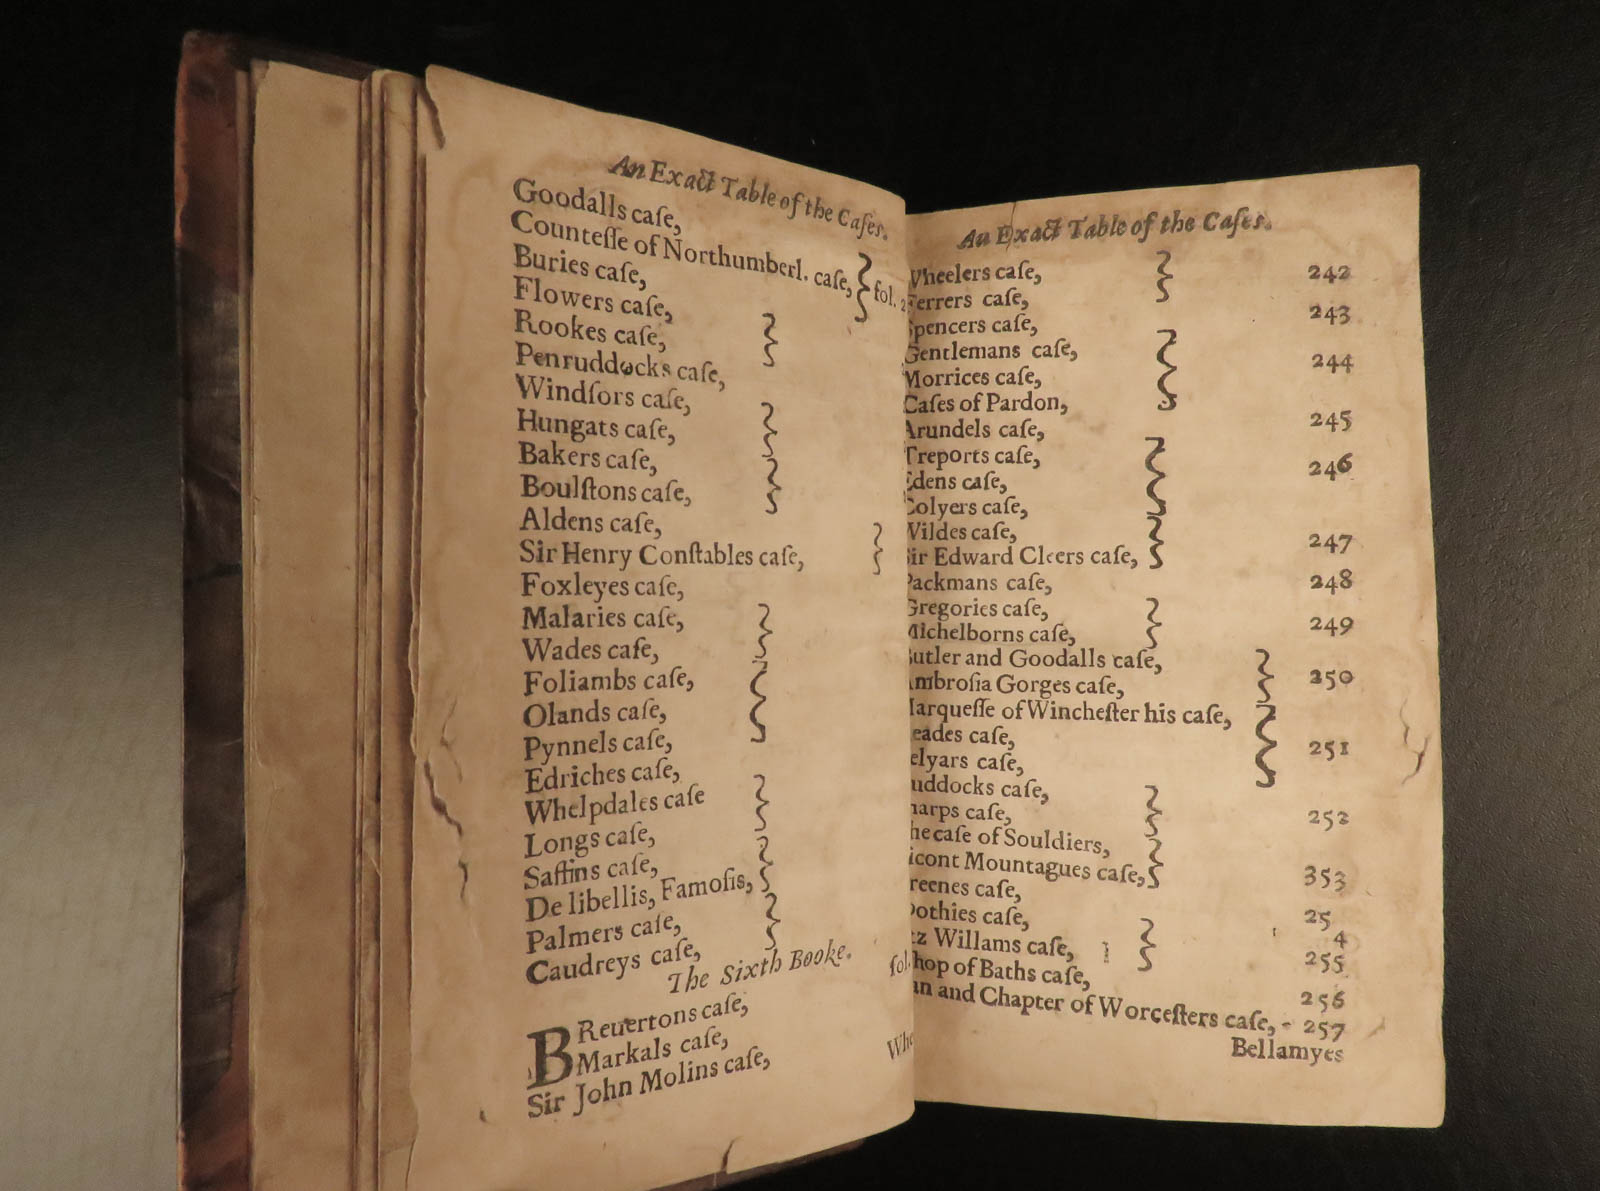 An Exact Table of the Caſes.
Goodalls caſe,
Counteſſe of Northumberl. caſe, fol. 2
Buries caſe,
Flowers caſe,
Rookes caſe,
Penruddocks caſe,
Windſors caſe,
Hungats caſe,
Bakers caſe,
Boulſtons caſe,
Aldens caſe,
Sir Henry Conſtables caſe,
Foxleyes caſe,
Malaries caſe,
Wades caſe,
Foliambs caſe,
Olands caſe,
Pynnels caſe,
Edriches caſe,
Whelpdales caſe
Longs caſe,
Saffins caſe,
De libellis, Famoſis,
Palmers caſe,
Caudreys caſe,
The Sixth Booke. fol.
BReuertons caſe,
Markals caſe,
Sir John Molins caſe,
Whe
An Exact Table of the Caſes.
Wheelers caſe, 242
Ferrers caſe,
Spencers caſe, 243
Gentlemans caſe,
Morrices caſe, 244
Caſes of Pardon,
Arundels caſe, 245
Treports caſe,
Edens caſe, 246
Colyers caſe,
Wildes caſe,
Sir Edward Cleers caſe, 247
Packmans caſe, 248
Gregories caſe,
Michelborns caſe, 249
Butler and Goodalls caſe,
Ambroſia Gorges caſe, 250
Marqueſſe of Wincheſter his caſe,
eades caſe, 251
elyars caſe,
uddocks caſe,
harps caſe, 252
he caſe of Souldiers,
icont Mountagues caſe, 353
reenes caſe,
Bothies caſe, 25 4
tz Willams caſe, 255
hop of Baths caſe, 256
an and Chapter of Worceſters caſe, - 257
Bellamyes